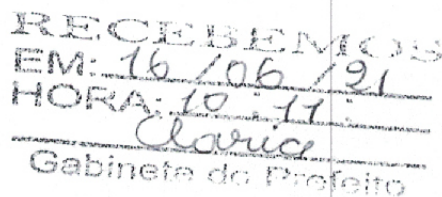 RECEBEMOS
EM: 16 / 06 / 21
HORA: 10 : 11 :
Gabinete do Prefeito